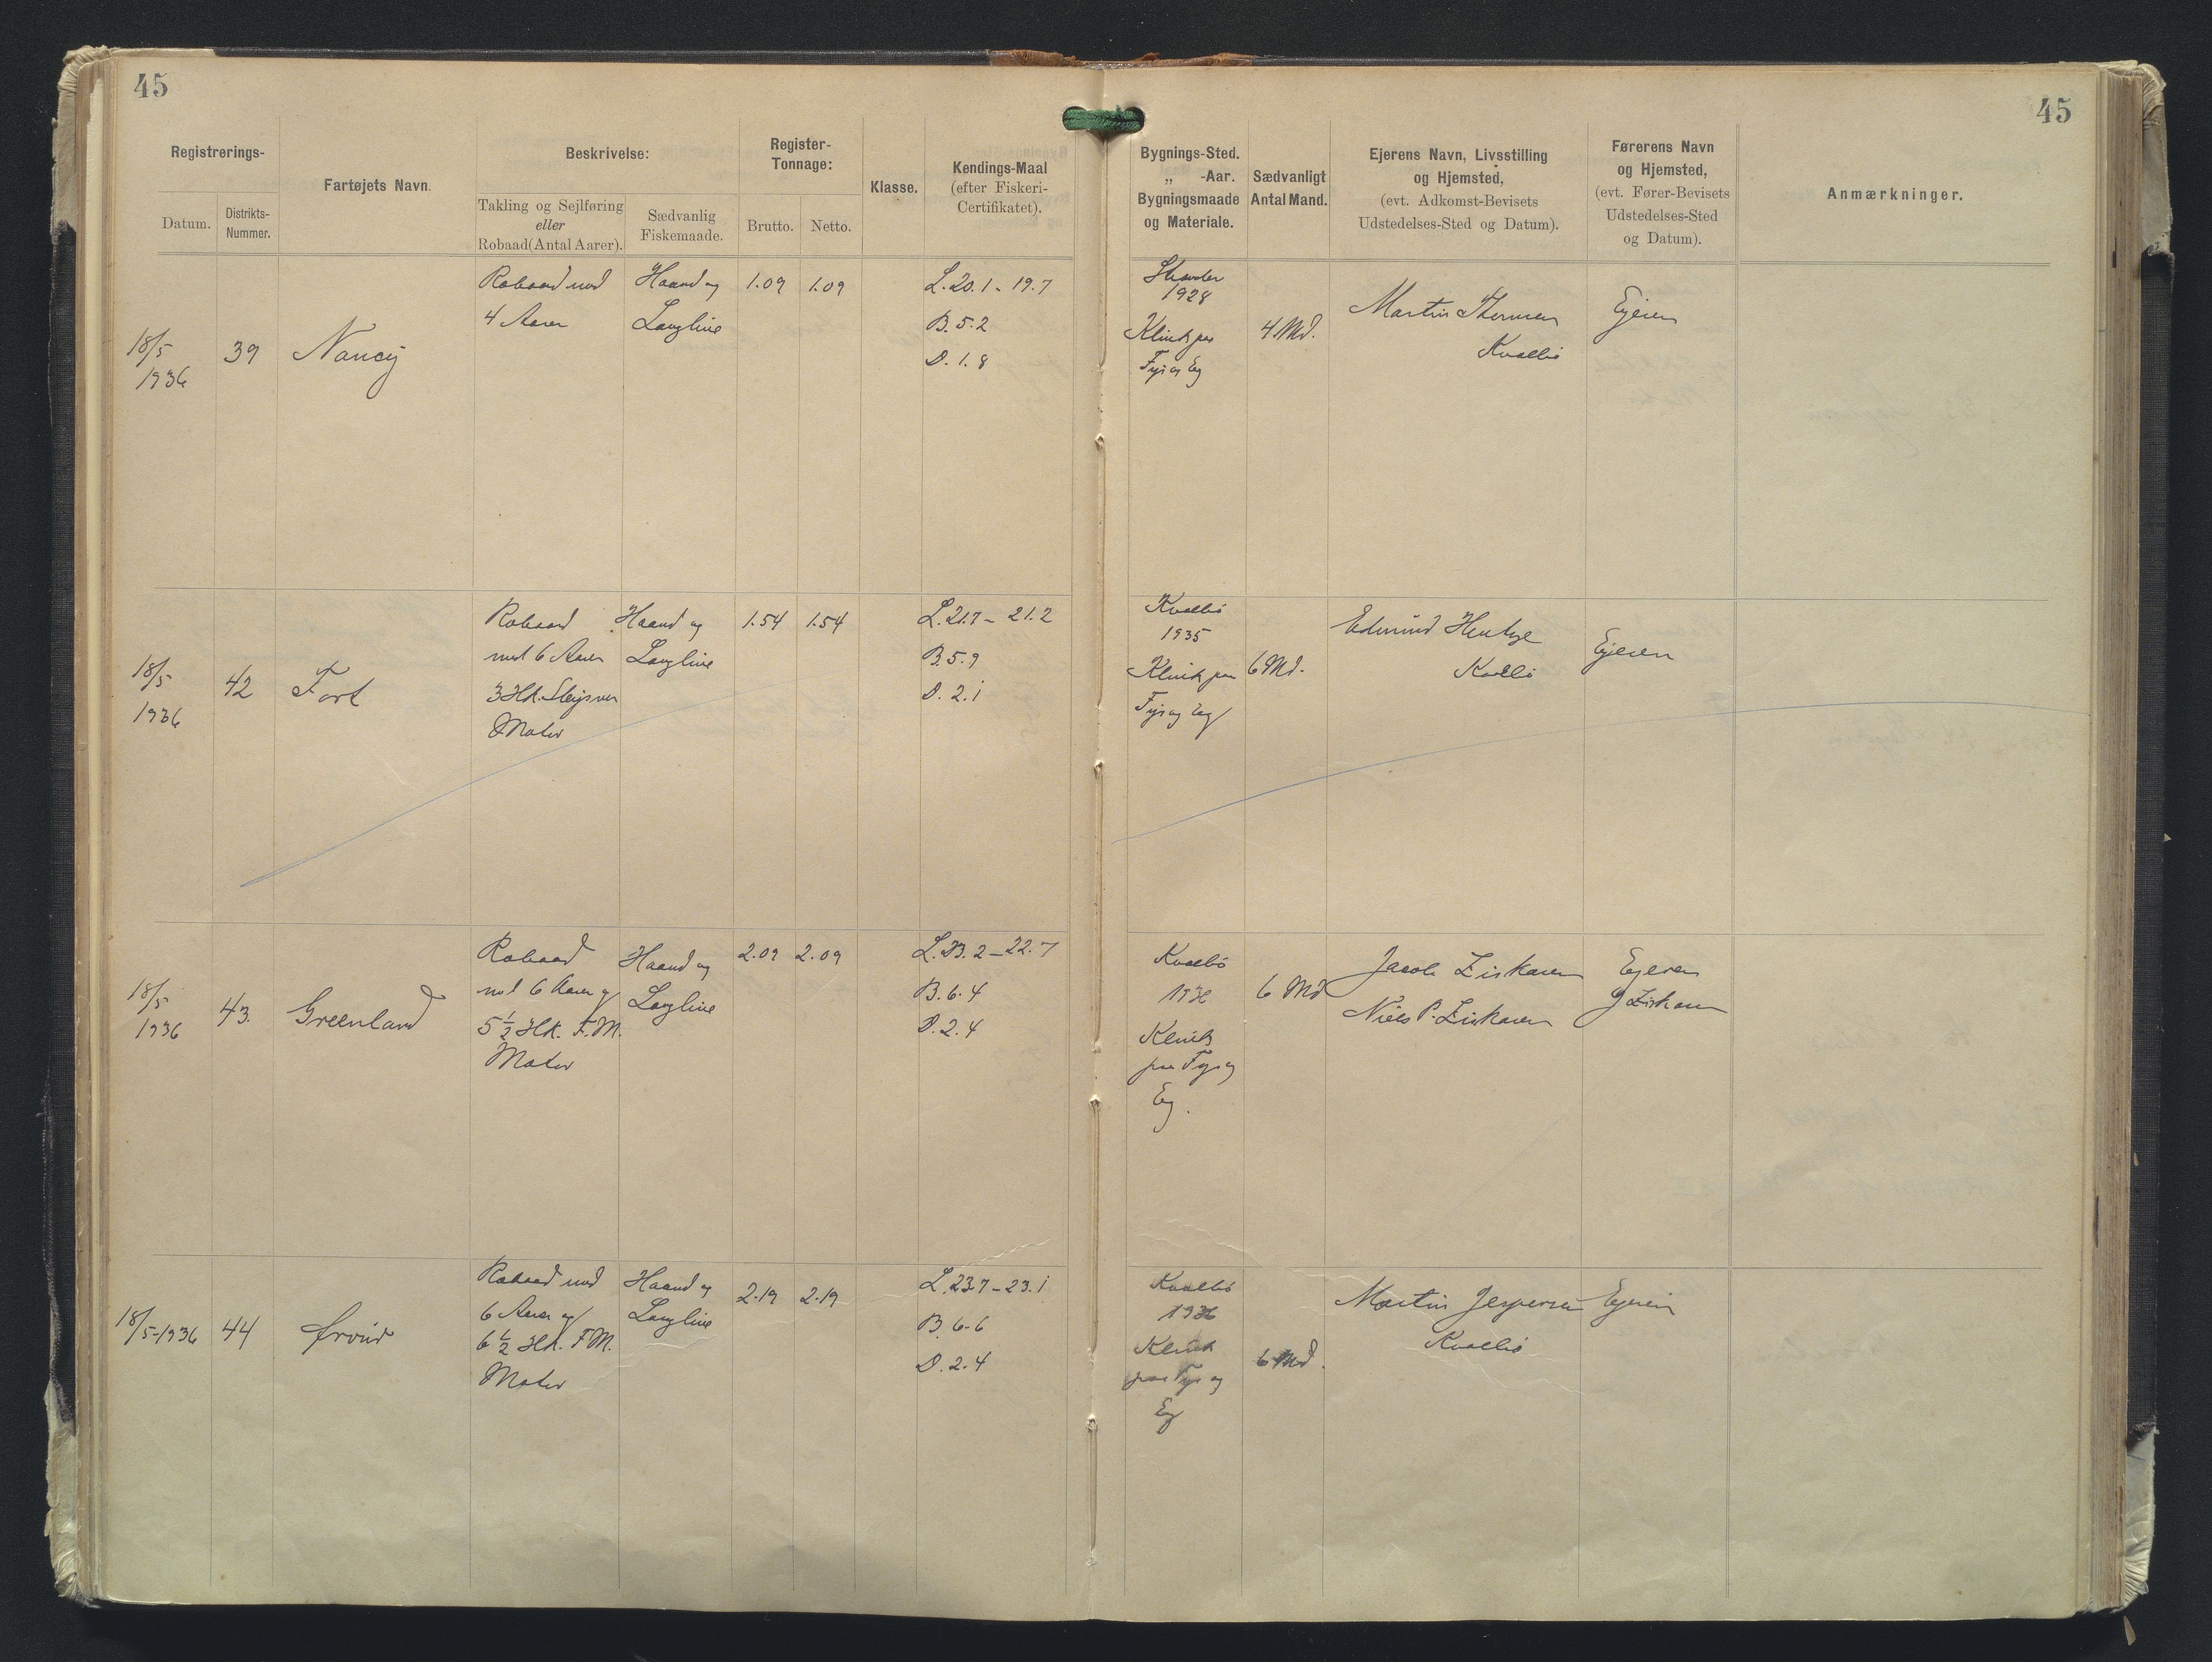 45
45
Registrerings-
Datum.
Distrikts-
Nummer.
Fartøjets Navn.
Beskrivelse:
Takling og Sejlføring
eller
Robaad (Antal Aarer).
Sædvanlig
Fiskemaade.
Register-
Tonnage:
Brutto.
Netto.
Klasse.
Kendings-Maal
(efter Fiskeri-
Certifikatet).
Bygnings-Sted.
„ -Aar.
Bygningsmaade
og Materiale.
Sædvanligt
Antal Mand.
Ejerens Navn, Livsstilling
og Hjemsted,
(evt. Adkomst-Bevisets
Udstedelses-Sted og Datum).
Førerens Navn
og Hjemsted,
(evt. Fører-Bevisets
Udstedelses-Sted
og Datum).
Anmærkninger.
18/5
1936
39
Nancy
Robaad med
4 Aarer
Haand og
Langline
1.09
1.09
L. 20.1 - 19.7
B. 5.2
D. 1.8
1928
Klink paa
Fyr og Eg
4 Md.
Martin
Kvalbö
Ejeren
18/5
1936
42
Robaad
med 6 Aarer
3 Hk. Sleipner
Motor
Haand og
Langline
1.54
1.54
L. 21.7 - 21.2
B. 5.9
D. 2.1
Kvalbö
1935
Klink paa
Fyr og Eg
6 Md.
Edmund Hentze
Kvalbö
Ejeren
18/5
1936
43.
Greenland
Robaad
med 6 Aarer og
5 1/2 Hk. F.M.
Motor
Haand og
Langline
2.09
2.09
L. 23.2 - 22.7
B. 6.4
D. 2.4
Kvalbö
1936
Klink
paa Fyr og
Eg.
6 Md
Jacob Ziskasen
Niels P. Ziskasen
Ejeren
J Ziskasen
18/5-1936
44
Robaad med
6 Aarer og
6 1/2 Hk. F.M.
Motor
Haand og
Langline
2.19
2.19
L. 23.7 - 23.1
B. 6.6
D. 2.4
Kvalbö
1936
Klink
paa Fyr og
Eg
6 Md.
Martin Jespersen
Kvalbö
Ejeren